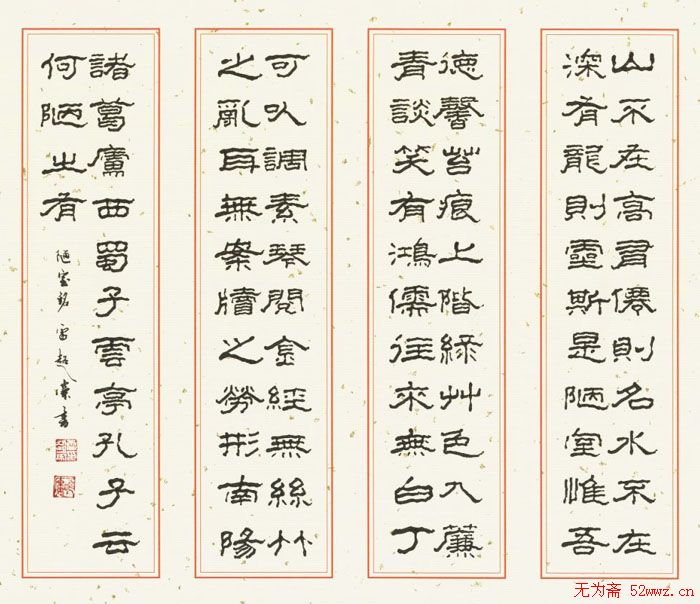 山不在高有僊則名水不在
深有龍則靈斯是陋室惟吾
德馨苔痕上階綠艸色入簾
青談笑有鴻儒往來無白丁
可以調素琴閱金經無絲竹
之亂耳無案牘之勞形南陽
諸葛廬西蜀子雲亭孔子云
何陋之有
陋室銘 雷超書
无为斋 52wwz.cn